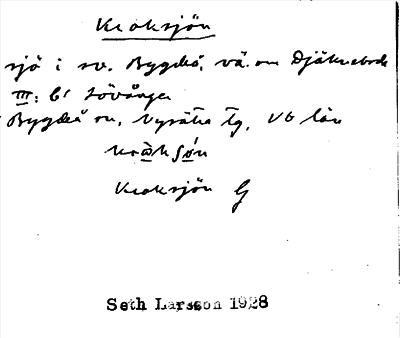 Kroksjön
sjö i sv. Bygdeå, vä. om Djäkneboda
III: C1 Lövånger
Bygdeå sn, Nysätra tg, Vb län
Kroksjön G
Seth Larsson 1928